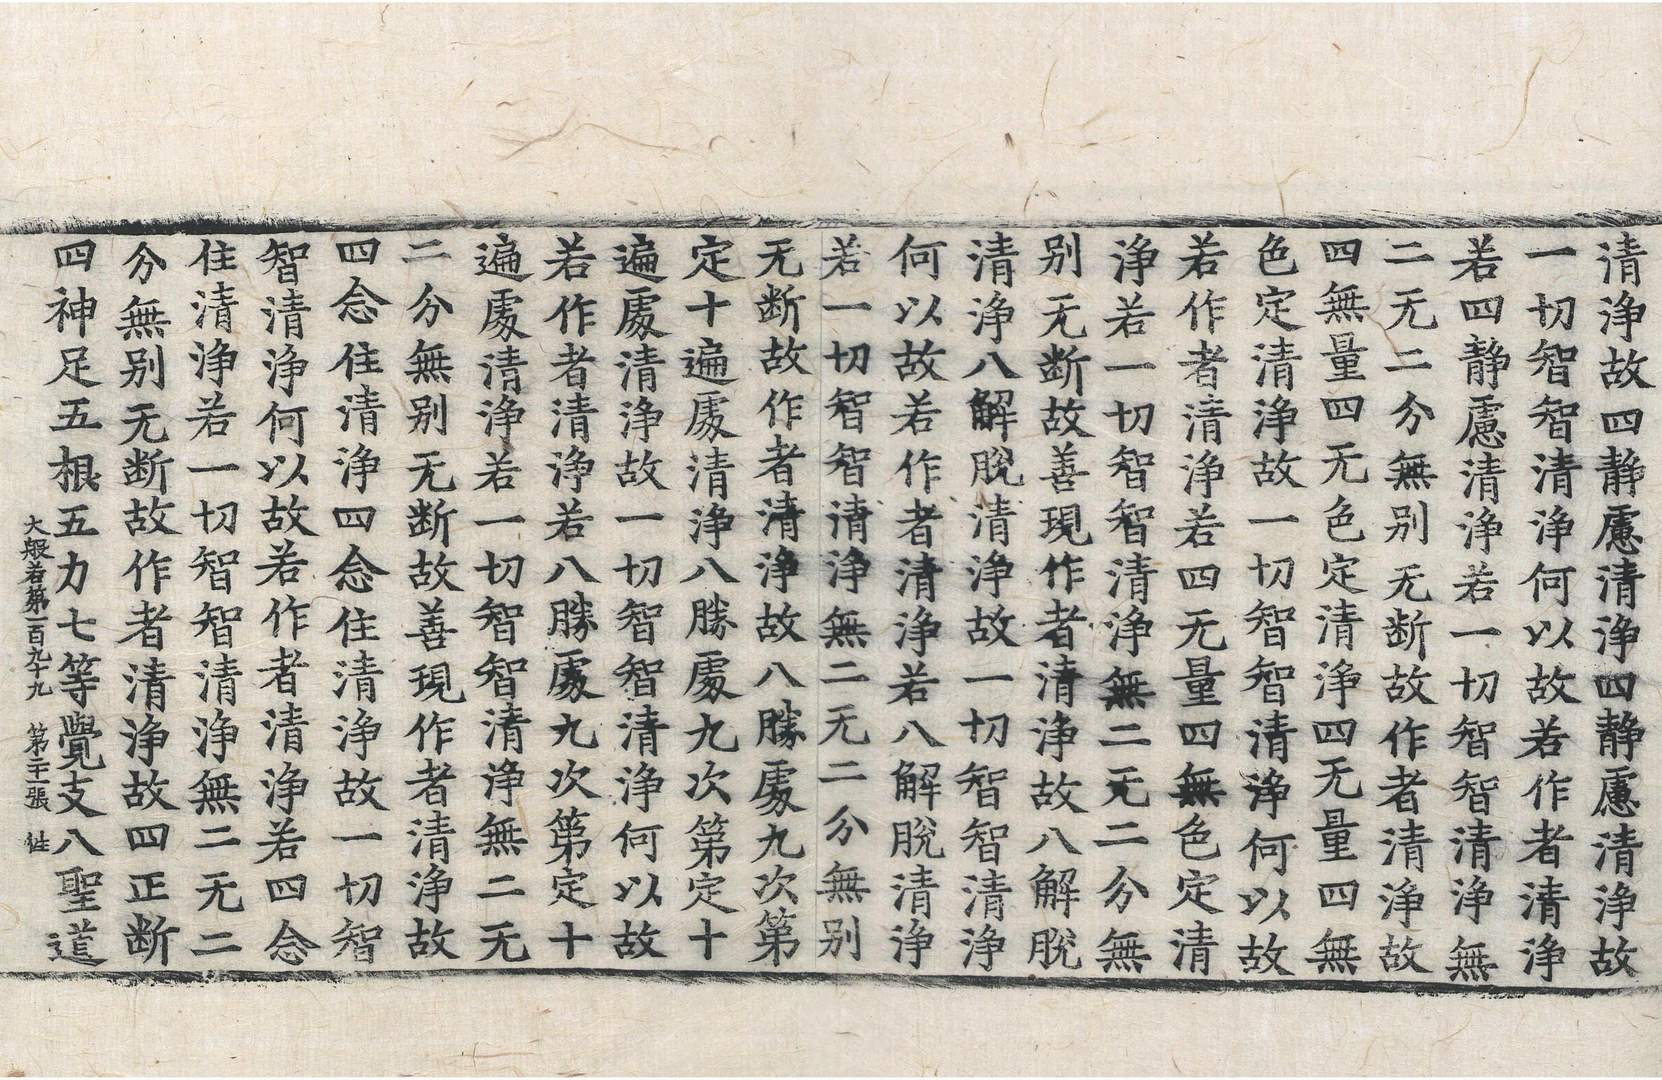 清淨故四静慮清淨四静慮清淨故
一切智智清淨何以故若作者清淨
若四静慮清淨若一切智智清淨無
二无二分無别无断故作者清淨故
四無量四无色定清淨四无量四無
色定清淨故一切智智清淨何以故
若作者清淨若四无量四無色定清
淨若一切智智清淨無二无二分無
别无断故善現作者清淨故八解脫
清淨八解脫清淨故一切智智清淨
何以故若作者清淨若八解脫清淨
若一切智智清淨無二无二分無别
无断故作者清淨故八勝處九次第
定十遍處清淨八勝處九次第定十
遍處清淨故一切智智清淨何以故
若作者清淨若八勝處九次第定十
遍處清淨若一切智智清淨無二无
二分無别无断故善現作者清淨故
四念住清淨四念住清淨故一切智
智清淨何以故若作者清淨若四念
住清淨若一切智智清淨無二无二
分無别无断故作者清淨故四正断
四神足五根五力七等覺支八聖道
大般若第一百九十九 第二十一張 徃